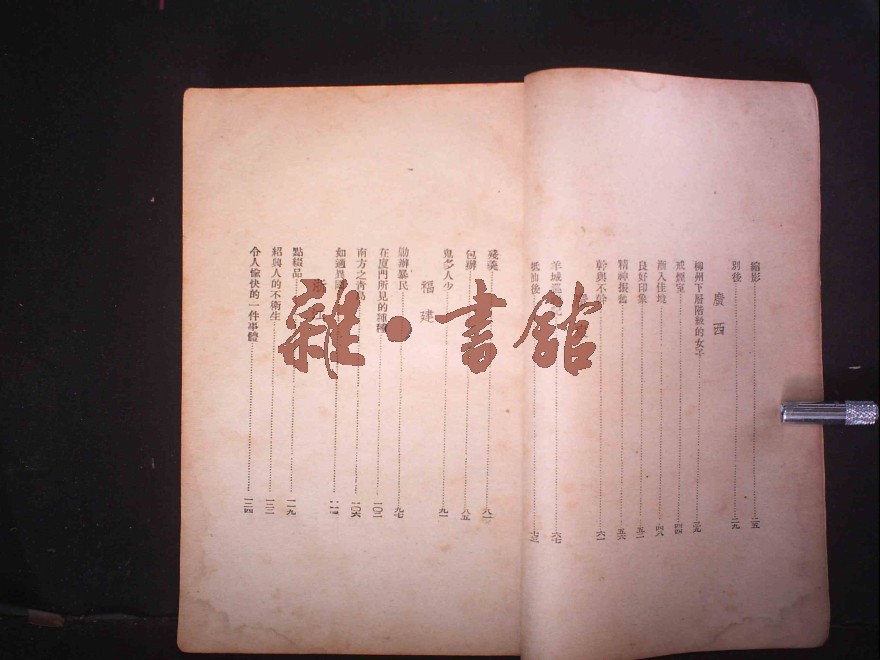 縮影…………二五
別後…………二九
廣西
柳州下層階級的女子…………三九
戒煙室…………四四
漸入佳境…………四八
良好印象…………五一
精神振奮…………五六
幹與不幹…………六一
羊城…………六七
抵汕後…………七三
殘羹…………八一
包辦…………八五
鬼多人少…………九一
福建
勦辦暴民…………九七
在廈門所見的種種…………一〇二
南方之青島…………一〇六
如遇異國…………一一
浙
點綴品…………一一九
紹興人的不衛生…………一三二
令人愉快的一件事體…………一三四
雜·書館